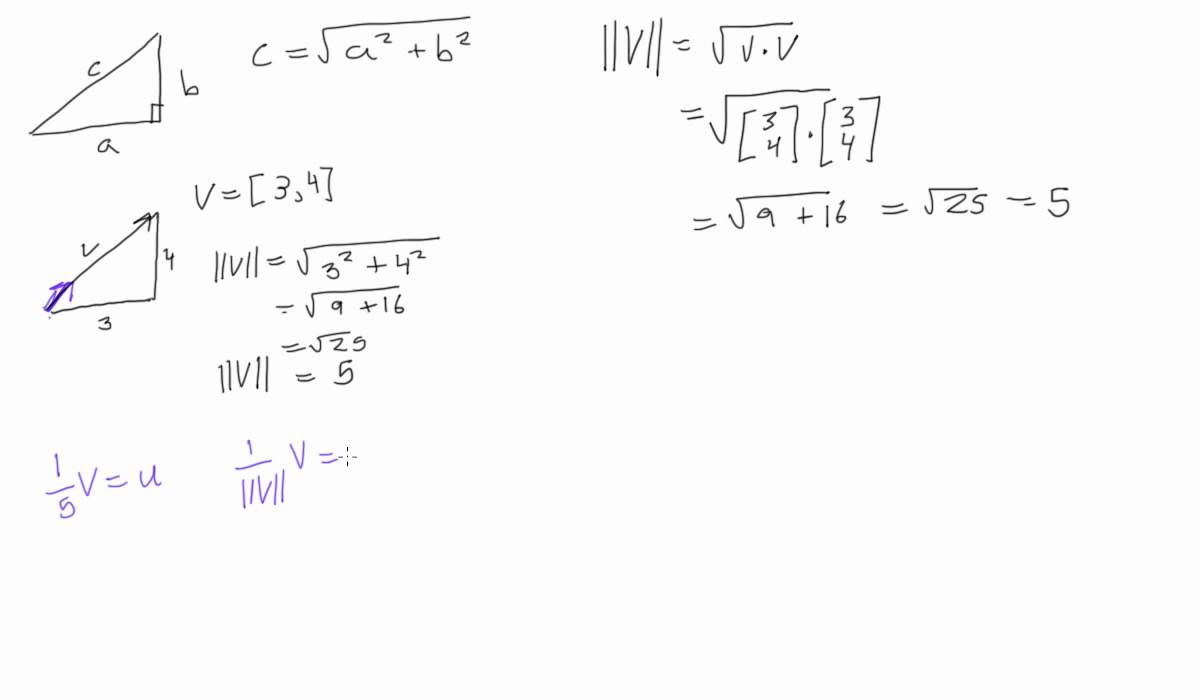 c
b
a
c = √a² + b²
V = [3,4]
v
4
3
||V|| = √3² + 4²
= √9 + 16
= √25
||V|| = 5
1/5 V = u
1/||V|| V =
||V|| = √V · V
= √[3 4] · [3 4]
= √9 + 16 = √25 = 5